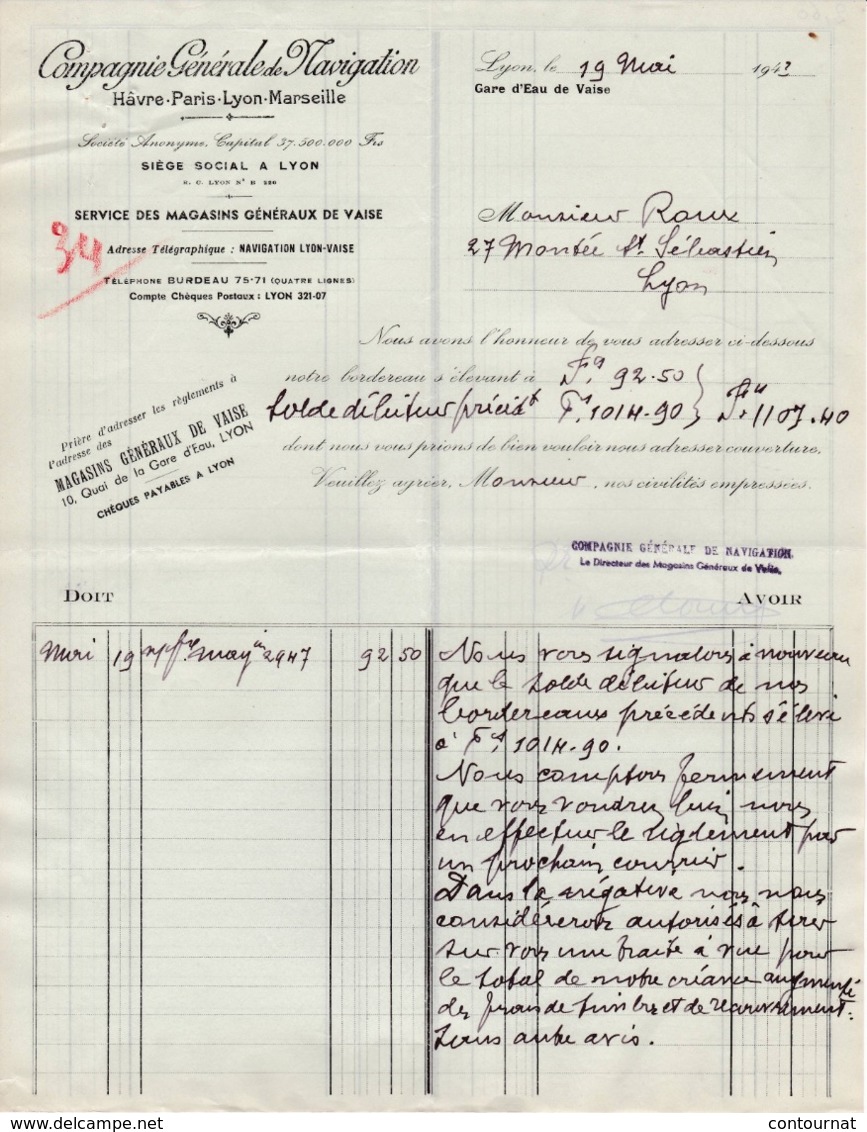 Compagnie Générale de Navigation
Hâvre-Paris-Lyon-Marseille
Société Anonyme, Capital 37.500.000 Frs
SIÈGE SOCIAL A LYON
R. C. LYON N° B 220
SERVICE DES MAGASINS GÉNÉRAUX DE VAISE
Adresse Télégraphique : NAVIGATION LYON-VAISE
TÉLÉPHONE BURDEAU 75-71 (QUATRE LIGNES)
Compte Chèques Postaux : LYON 321-07
34
Lyon, le 19 Mai 1943
Gare d'Eau de Vaise
Monsieur Roux
27 Montée St. Sébastien
Lyon
Nous avons l'honneur de vous adresser ci-dessous
notre bordereau s'élevant à Frs 92.50
solde débiteur précédt Frs 1014.90 Frs 1107.40
dont nous vous prions de bien vouloir nous adresser couverture.
Veuillez agréer, Monsieur, nos civilités empressées.
Prière d'adresser les règlements à
l'adresse des
MAGASINS GÉNÉRAUX DE VAISE
10, Quai de la Gare d'Eau, LYON
CHÈQUES PAYABLES A LYON
COMPAGNIE GÉNÉRALE DE NAVIGATION
Le Directeur des Magasins Généraux de Vaise,
DOIT
AVOIR
Mai 19 2947 92 50
Nous vous signalons à nouveau
que le solde débiteur de nos
bordereaux précédents s'élève
à Frs 1014.90.
Nous comptons fermement
que vous voudrez bien nous
en effectuer le règlement par
un prochain courrier.
Dans la négative nous nous
considérerons autorisés à tirer
sur vous une traite à vue pour
le total de notre créance augmenté
des frais de timbre et de recouvrement
sans autre avis.
contournat